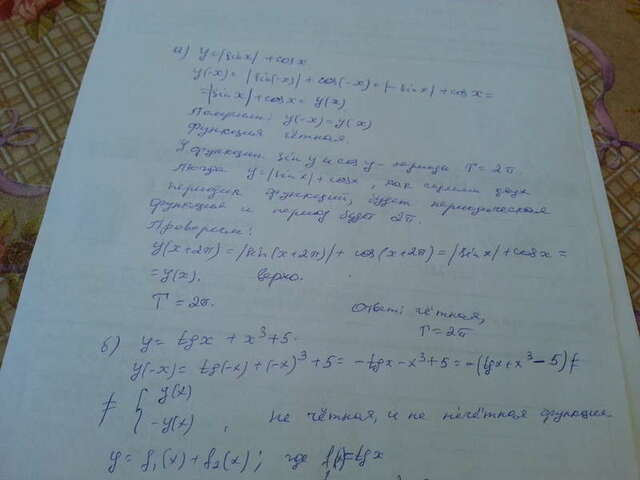 а) y=|sin x| + cos x
y(-x) = |sin(-x)| + cos(-x) = |-sin x| + cos x =
=|sin x| + cos x = y(x)
Получили: y(-x) = y(x)
Функция чётная
У функции sin y и cos y - периоды T = 2π.
Тогда y=|sin x| + cos x, как сумма двух
периодич функций, будет периодической
функцией и период будет 2π.
Проверим:
y(x+2π) = |sin(x+2π)| + cos(x+2π) = |sin x| + cos x =
= y(x). верно.
T = 2π.
Ответ: чётная,
T = 2π
б) y = tg x + x³+5.
y(-x) = tg(-x) + (-x)³ + 5 = -tg x - x³ + 5 = -(tg x + x³ - 5) ≠
≠ { y(x)
-y(x) , не чётная, и не нечётная функция
y = f₁(x) + f₂(x); где f₁(x)=tg x